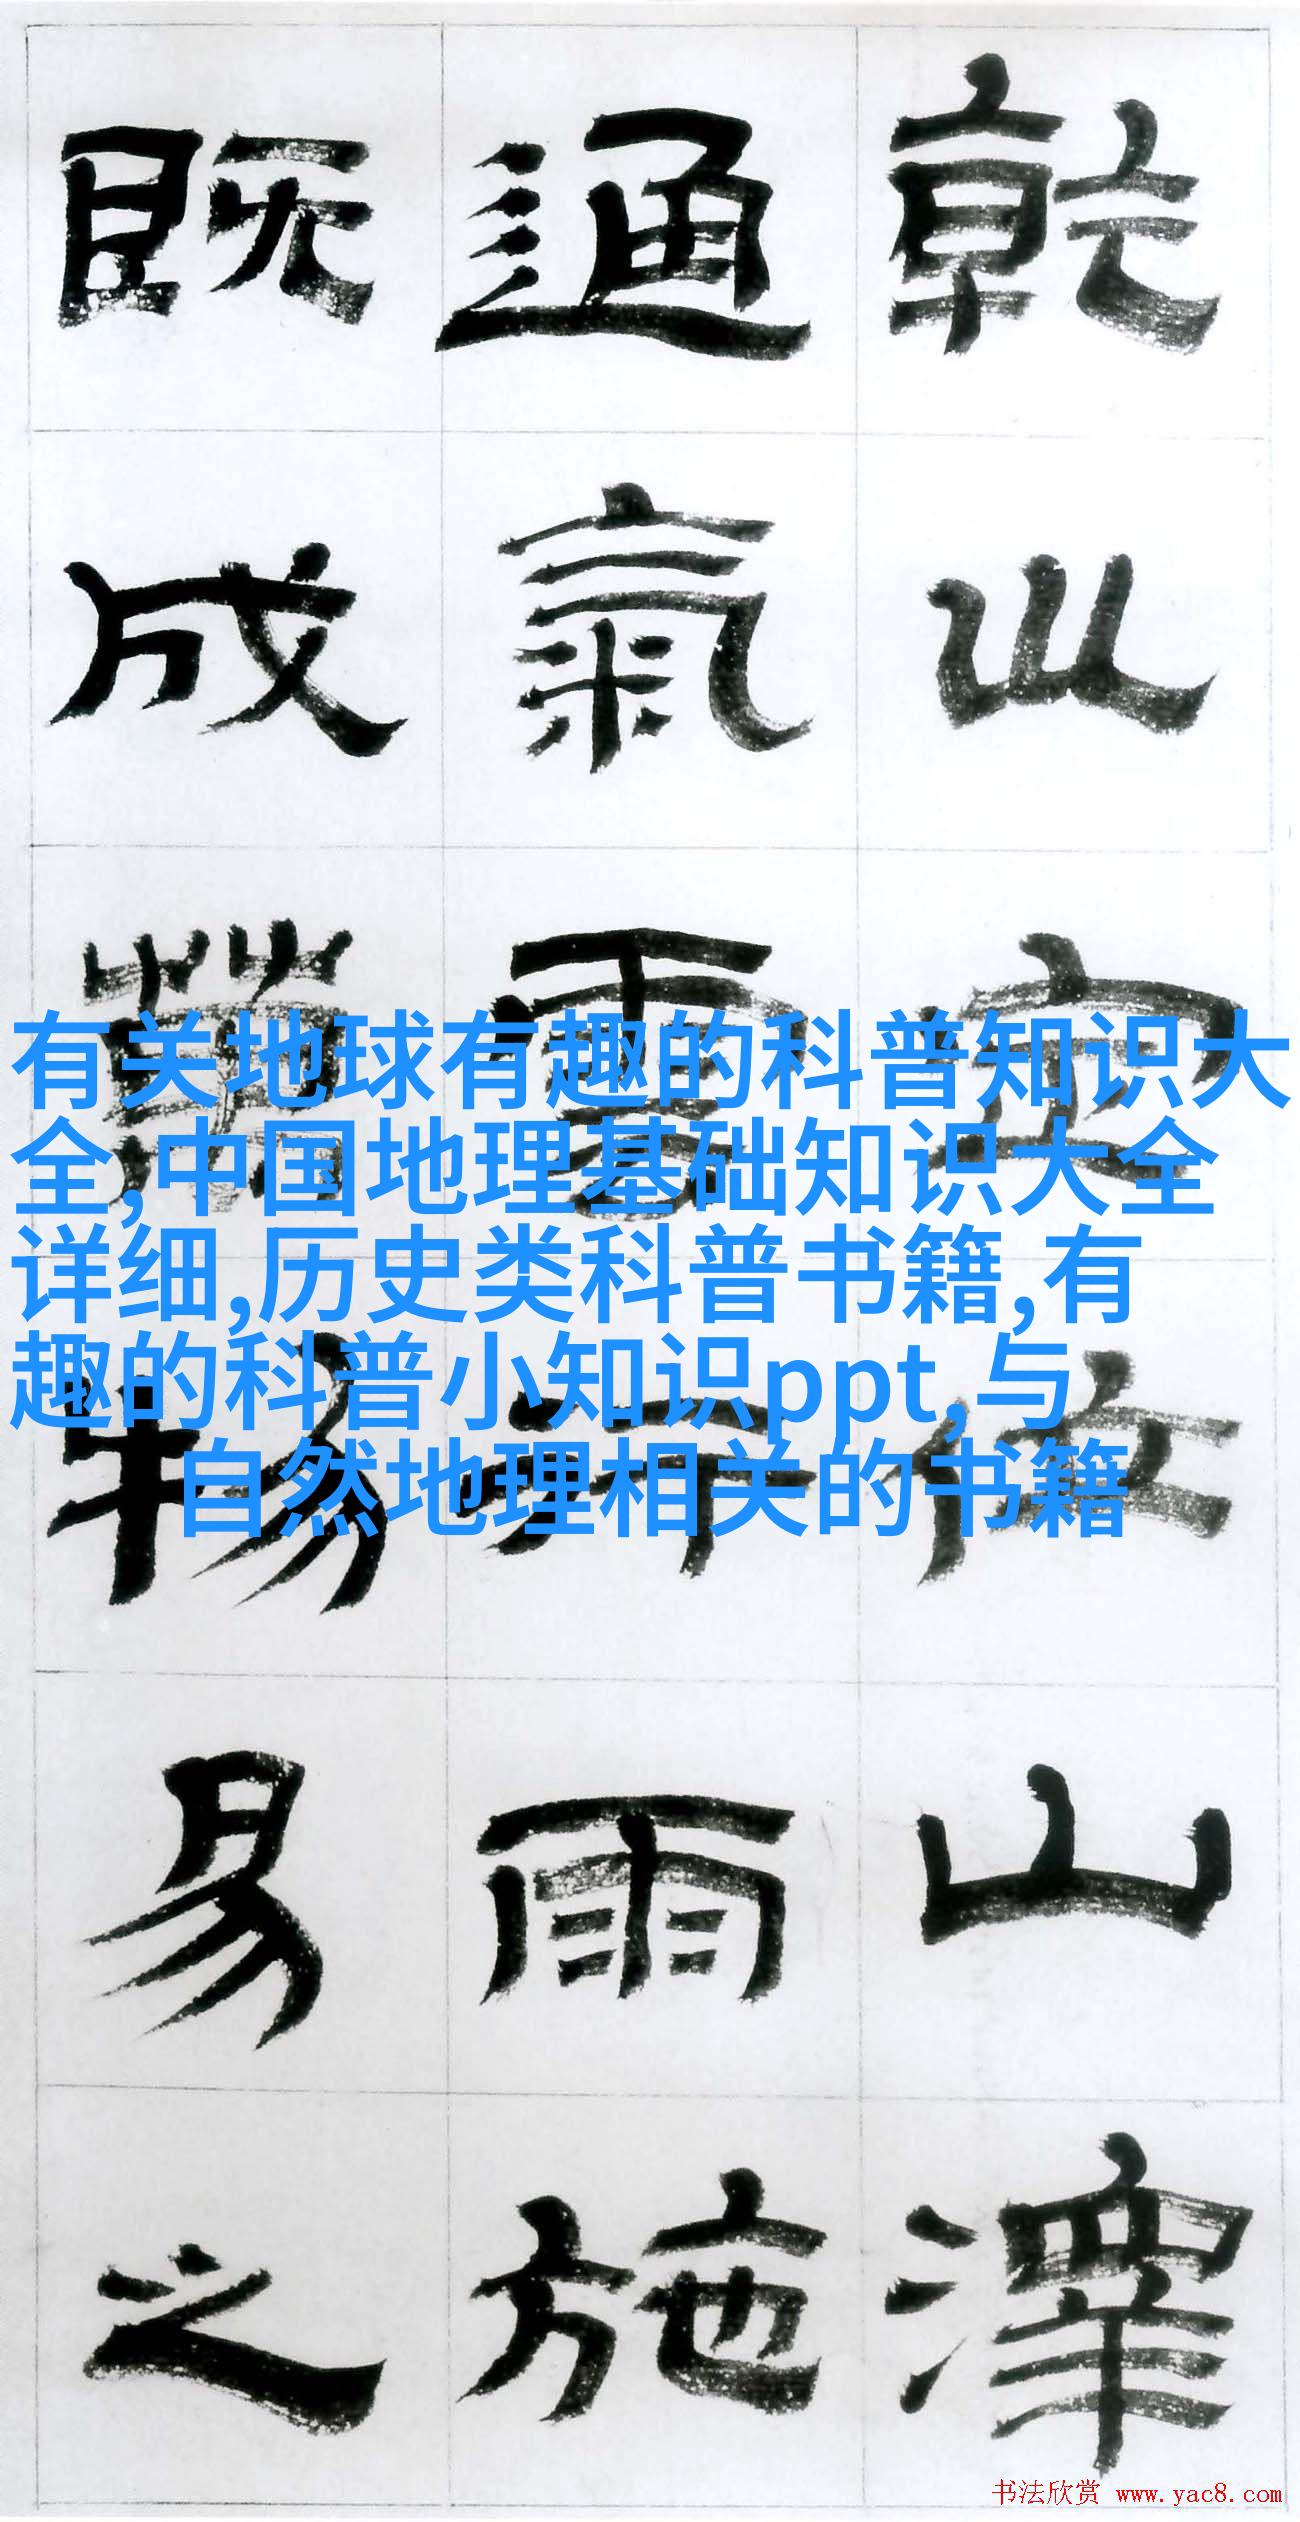 乾巛定位山澤
通氣雲行雨施
既成萬物易之
有关地球有趣的科普知识大
全,中国地理基础知识大全
详细,历史类科普书籍,有
趣的科普小知识ppt,与
自然地理相关的书籍
书法欣赏 www.yac8.com